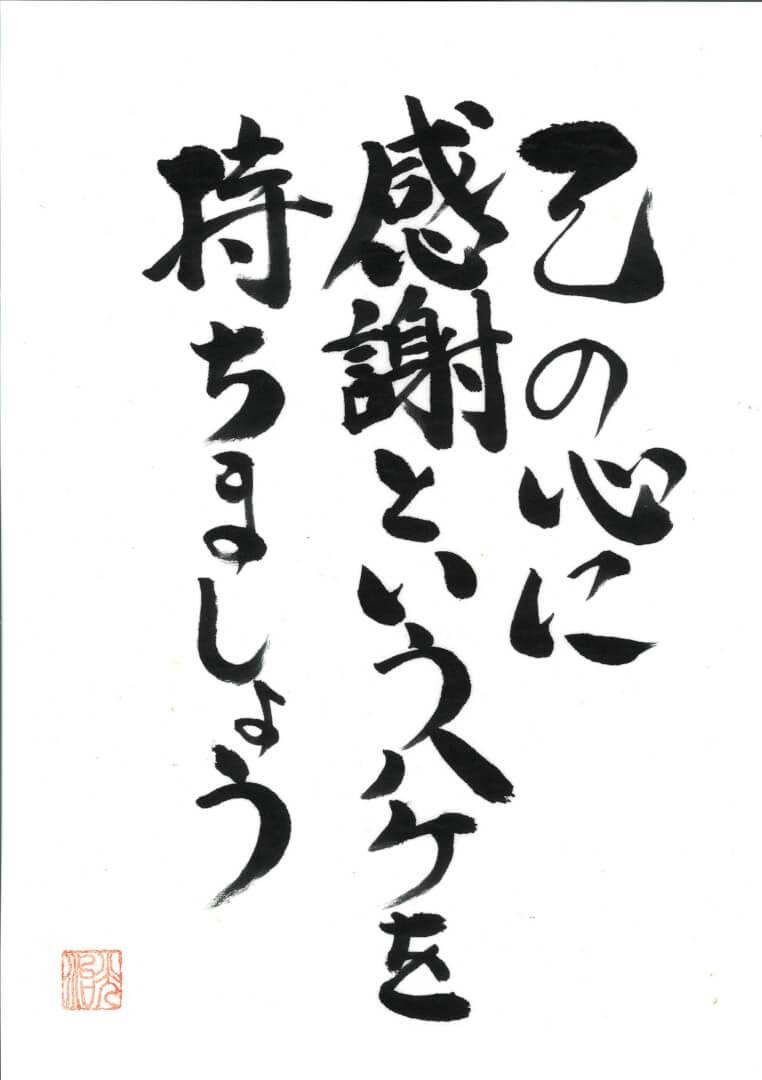 己の心に
感謝というハケを
持ちましょう